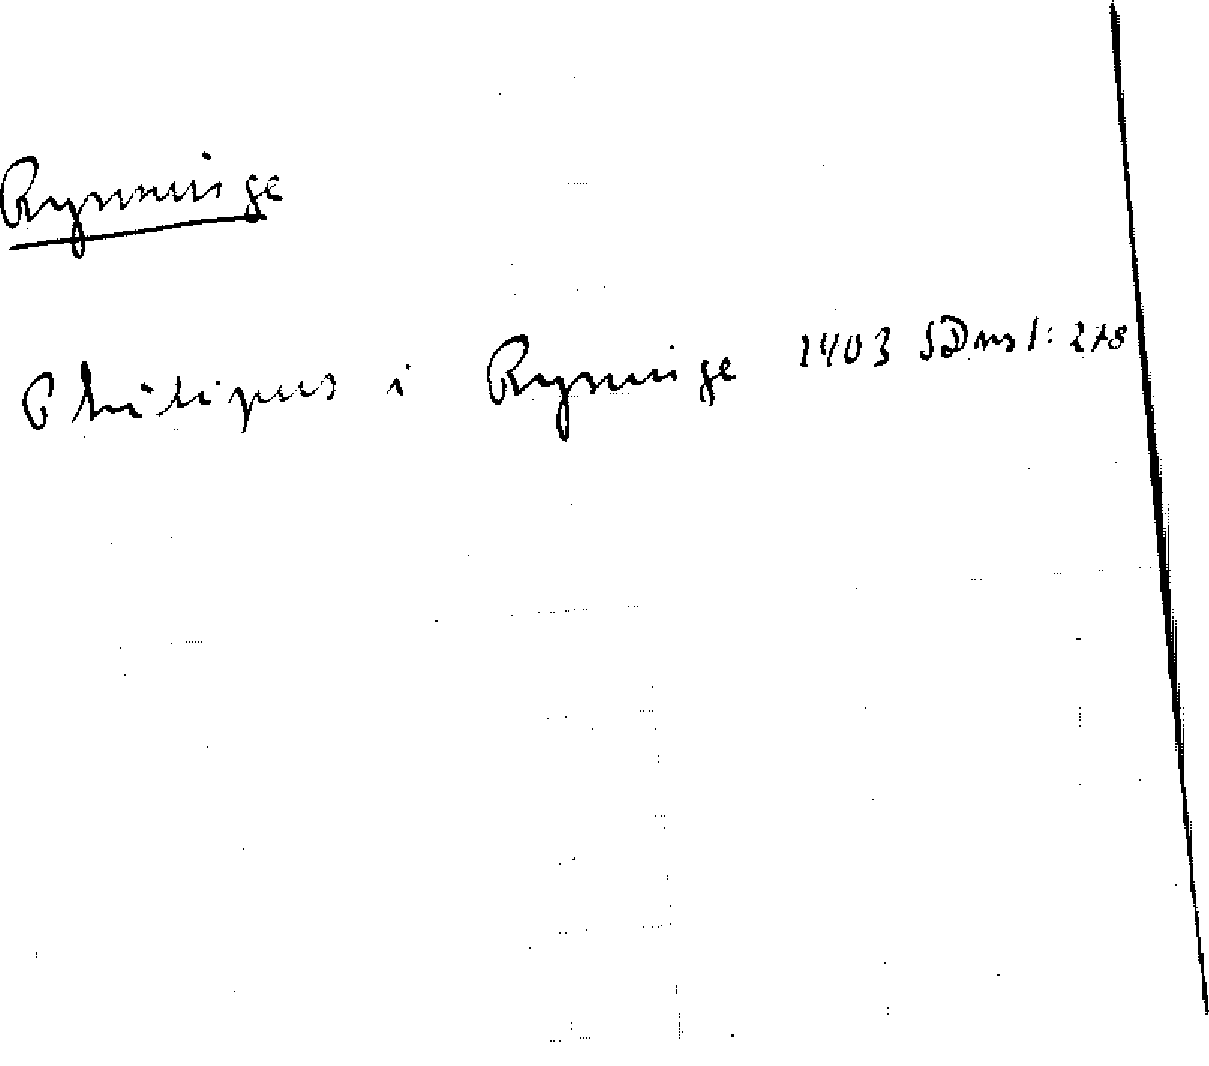 Rynninge
Philipus i Rynninge 1403 SDns 1: 218